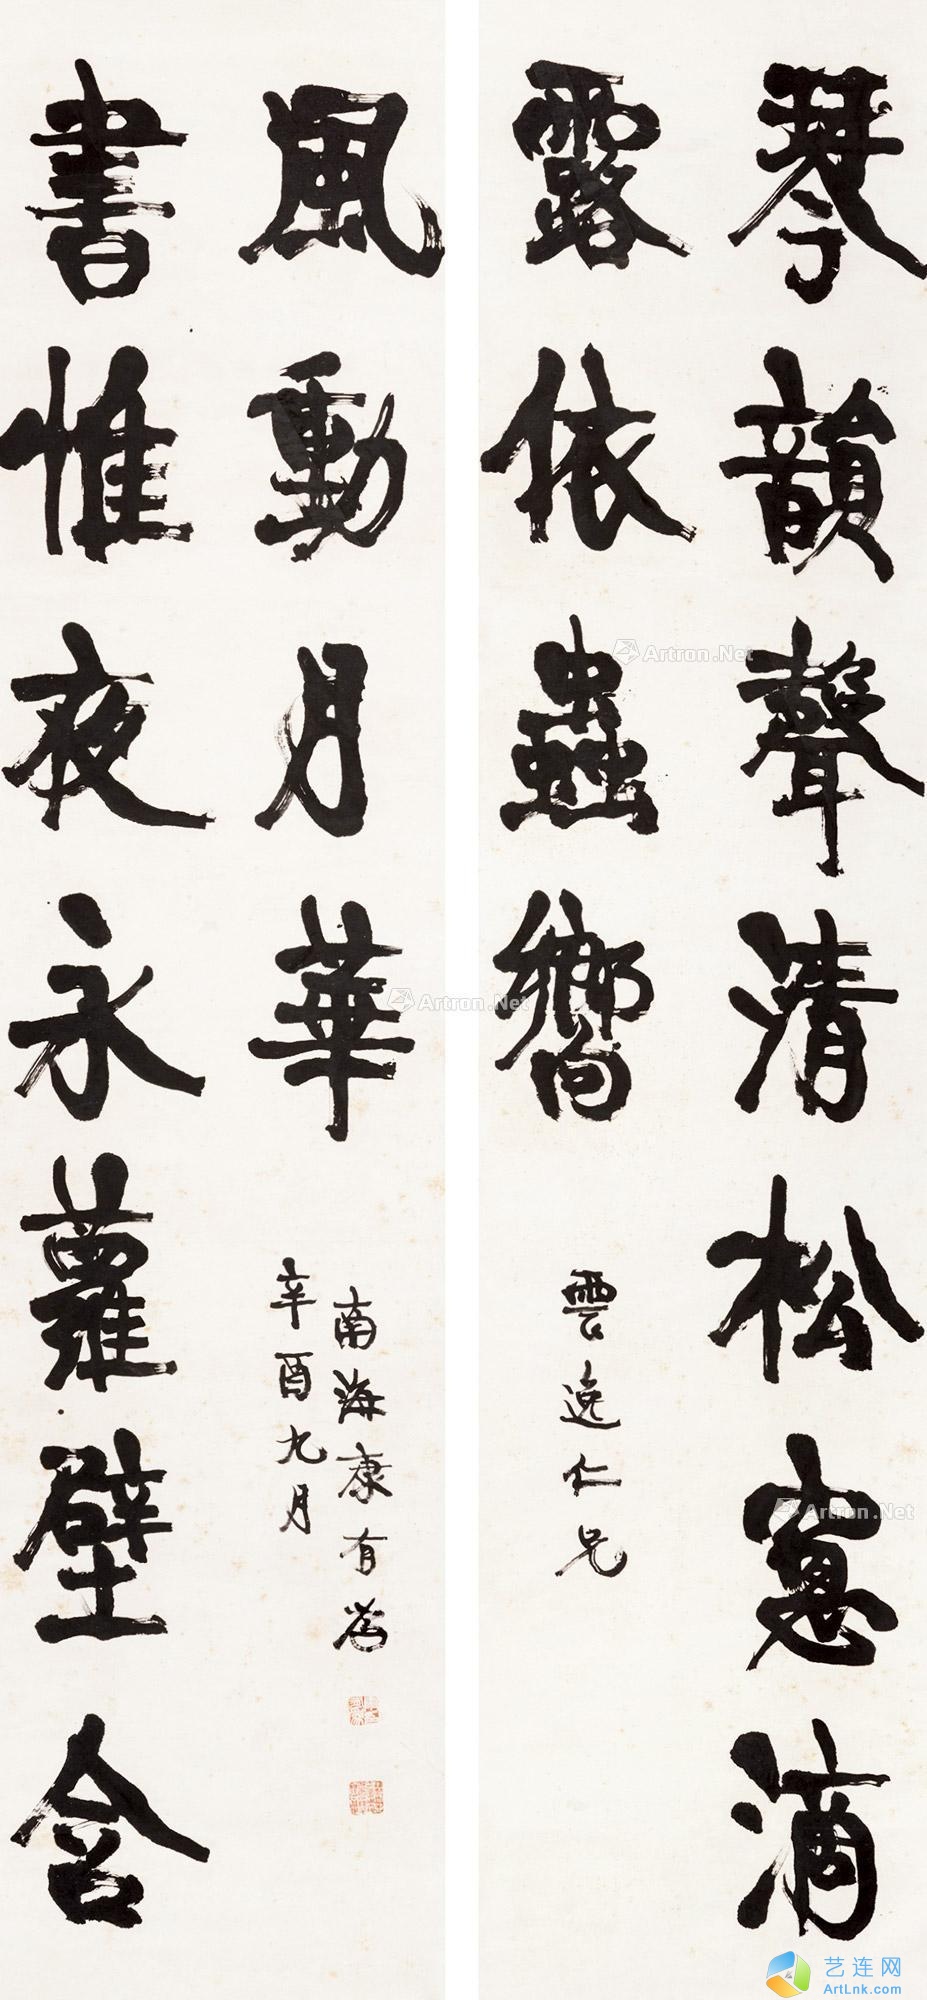 琴韻聲清松窻滴
露依蟲響
雲逸仁兄
書惟夜永蘿壁含
風動月華
辛酉九月
南海康有為
Artron.Net
Artron.Net
Artron.Net
艺连网
ArtLnk.com